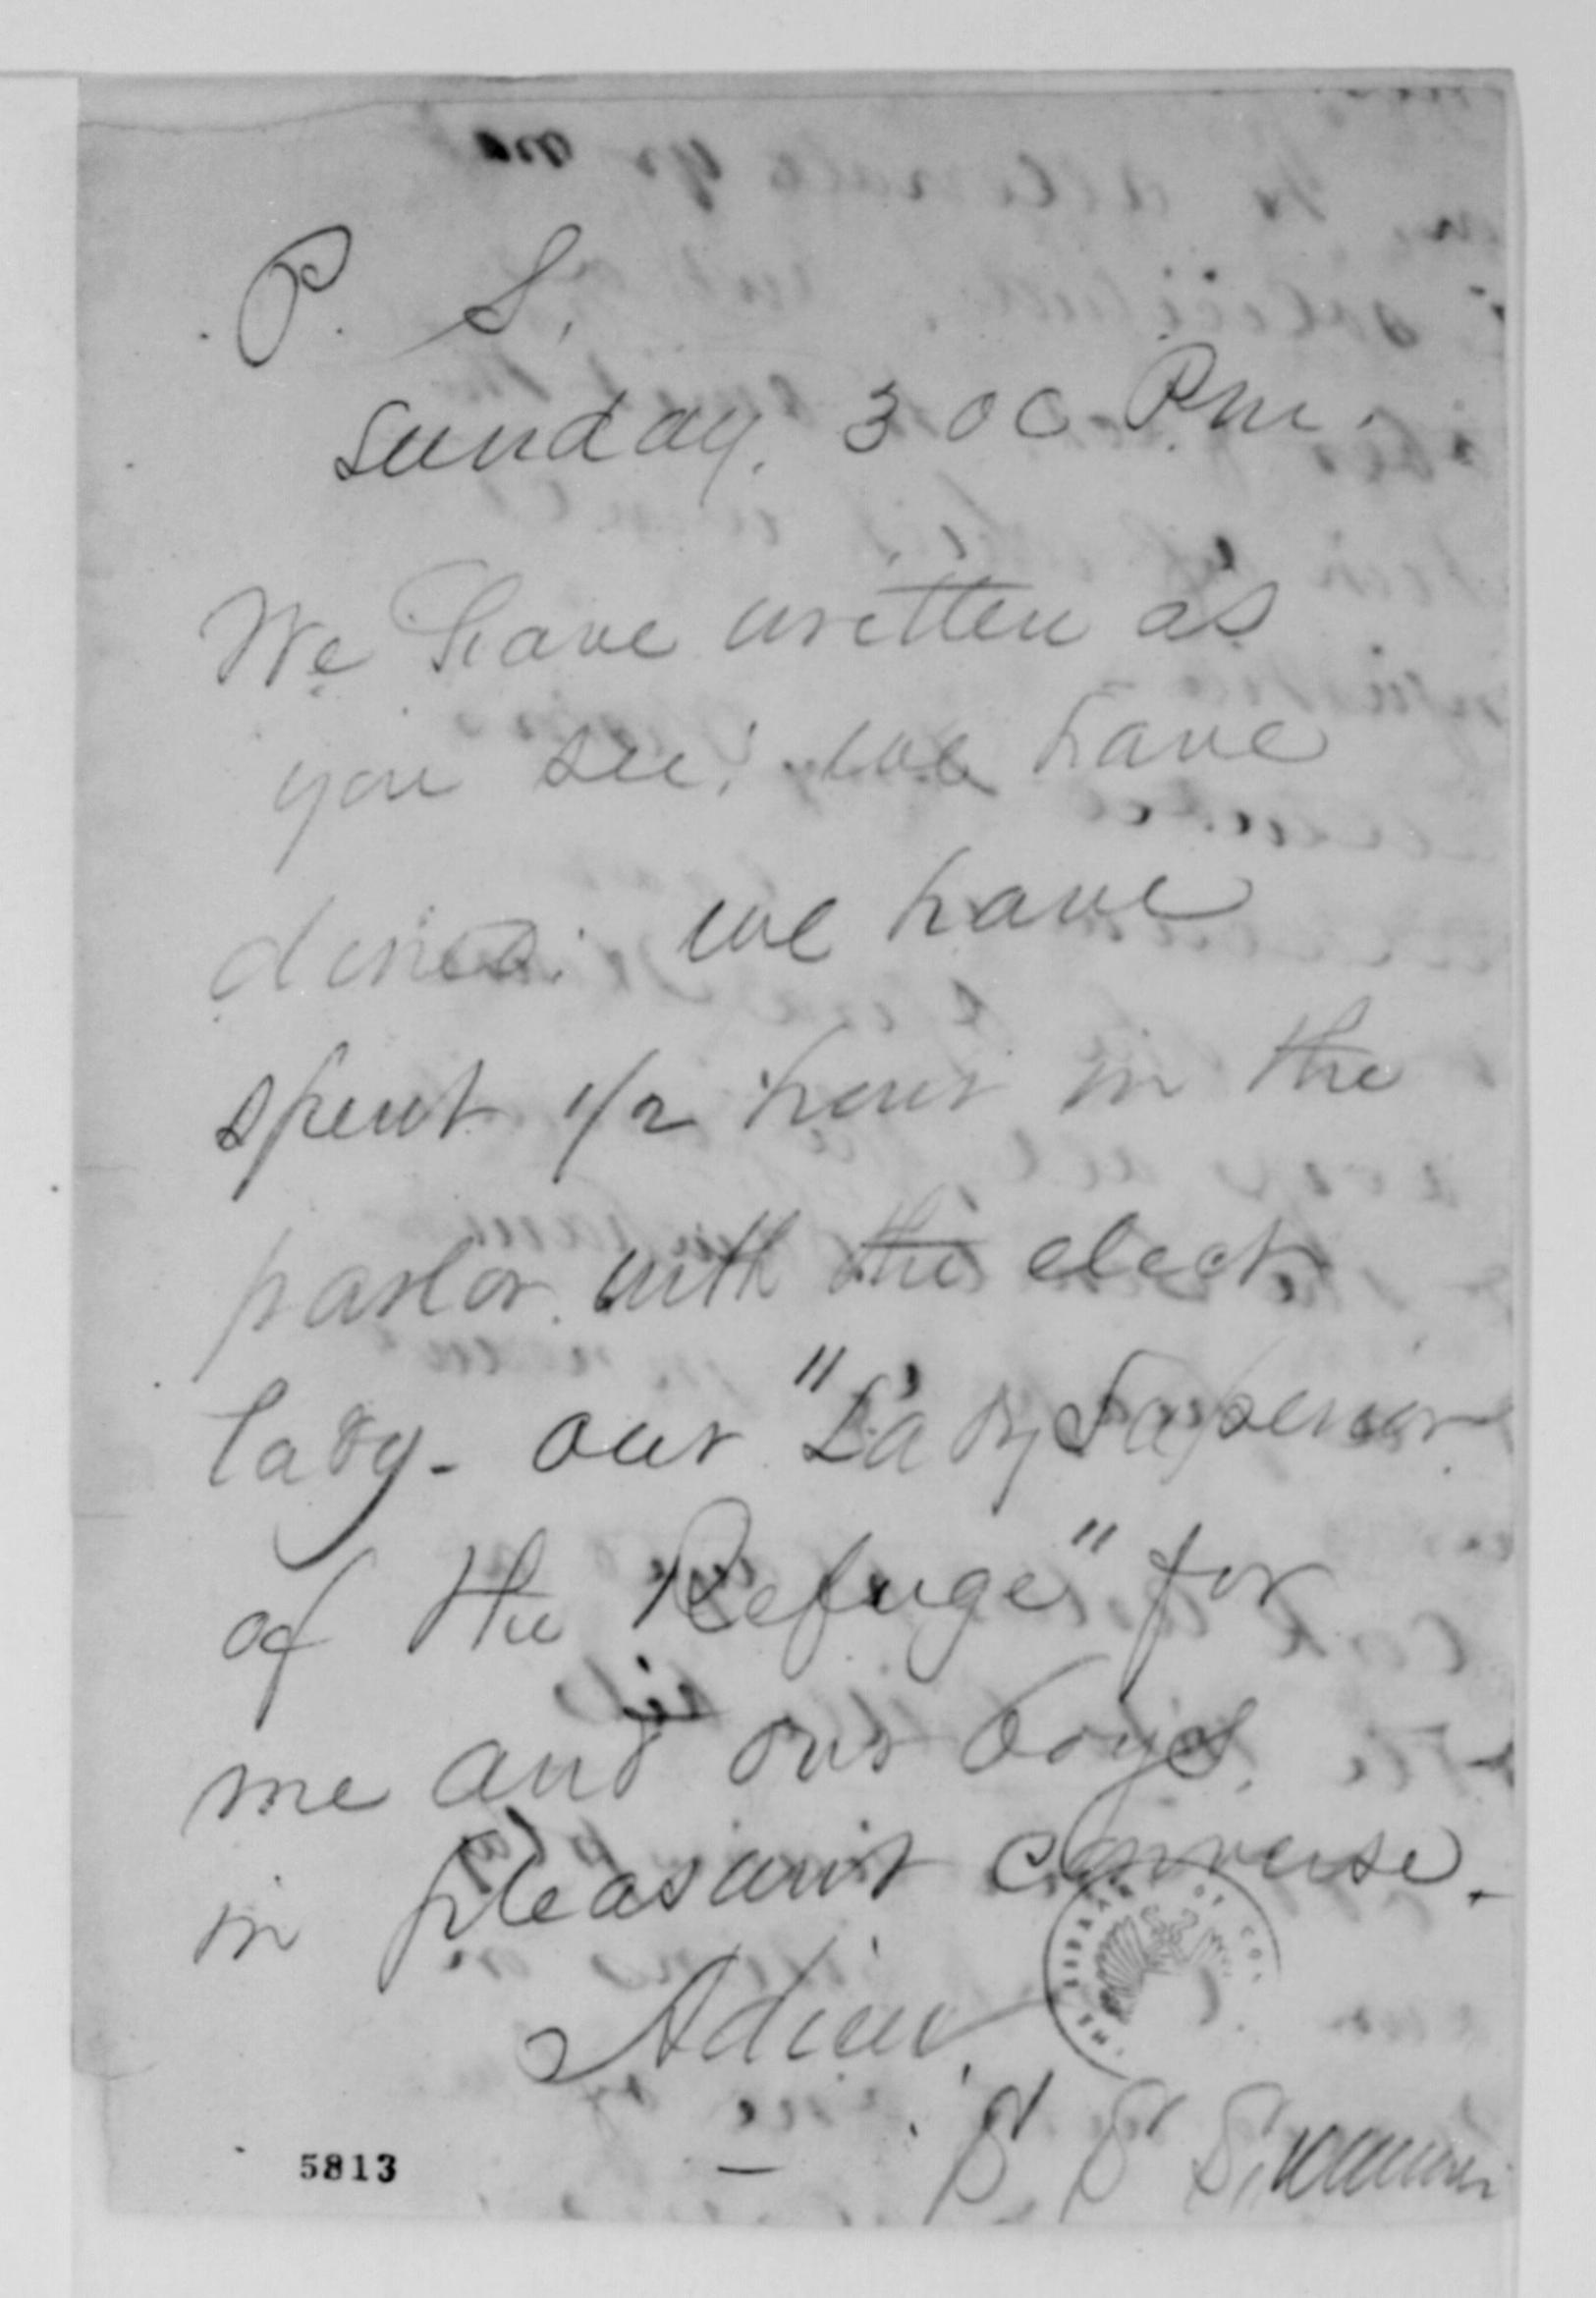 P. S.
Sunday. 3 oc Pm.
We have written as
you see; we have
dined: we have
spent 1/2 hour in the
parlor with the elect
lady - our "Lady Superior
of the Refuge" for
me and our boys
in pleasant converse.
Adieu.
S S
5813